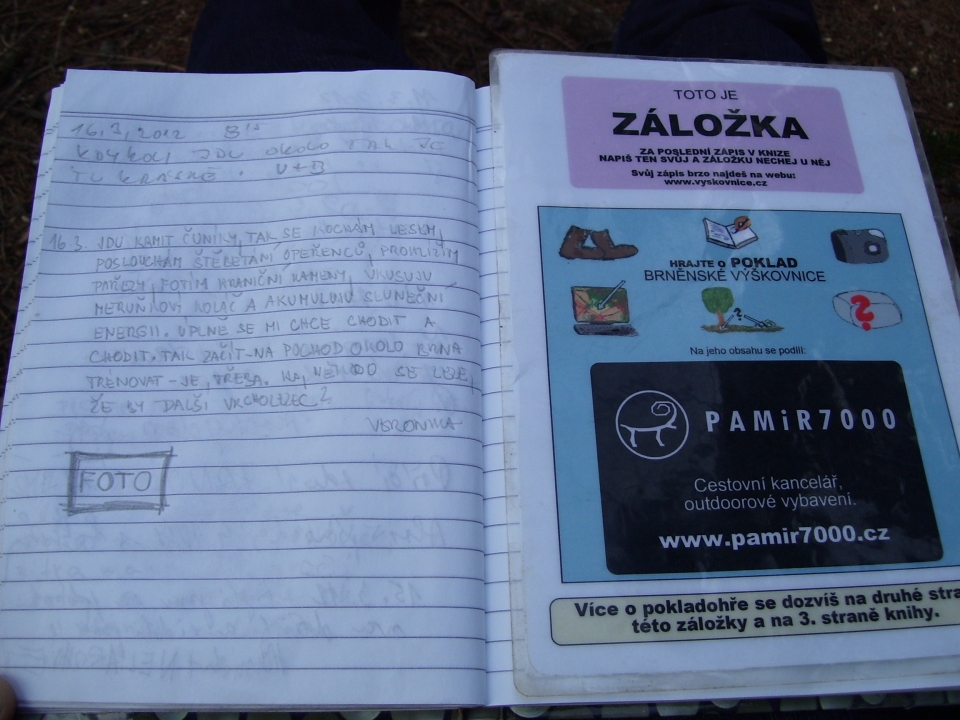 16.3.2012
KDYKOLI JDU OKOLO TAK JE
TU KRÁSNĚ. V+B
16.3. JDU KRMIT ČUNÍKY, TAK SE KOCHÁM LESEM,
POSLOUCHÁM ŠTĚBETÁNÍ OPEŘENCŮ, PROHLÍŽÍM
PAŘEZY, FOTÍM HRANIČNÍ KAMENY, UKUSUJU
MERUŇKOVÝ KOLÁČ A AKUMULUJU SLUNEČNÍ
ENERGII. ÚPLNĚ SE MI CHCE CHODIT A
CHODIT. TAK ZAČÍT-NA POCHOD OKOLO BRNA
TRÉNOVAT-JE TŘEBA. HA, NĚKDO SE LEZE,
ŽE BY DALŠÍ VRCHOLEZEC?
VERONIKA
FOTO
TOTO JE
ZÁLOŽKA
ZA POSLEDNÍ ZÁPIS V KNIZE
NAPIŠ TEN SVŮJ A ZÁLOŽKU NECHEJ U NĚJ
Svůj zápis brzo najdeš na webu:
www.vyskovnice.cz
HRAJTE O POKLAD
BRNĚNSKÉ VÝŠKOVNICE
?
?
Na jeho obsahu se podílí:
PAMiR7000
Cestovní kancelář,
outdoorové vybavení.
www.pamir7000.cz
Více o pokladohře se dozvíš na druhé stra
této záložky a na 3. straně knihy.